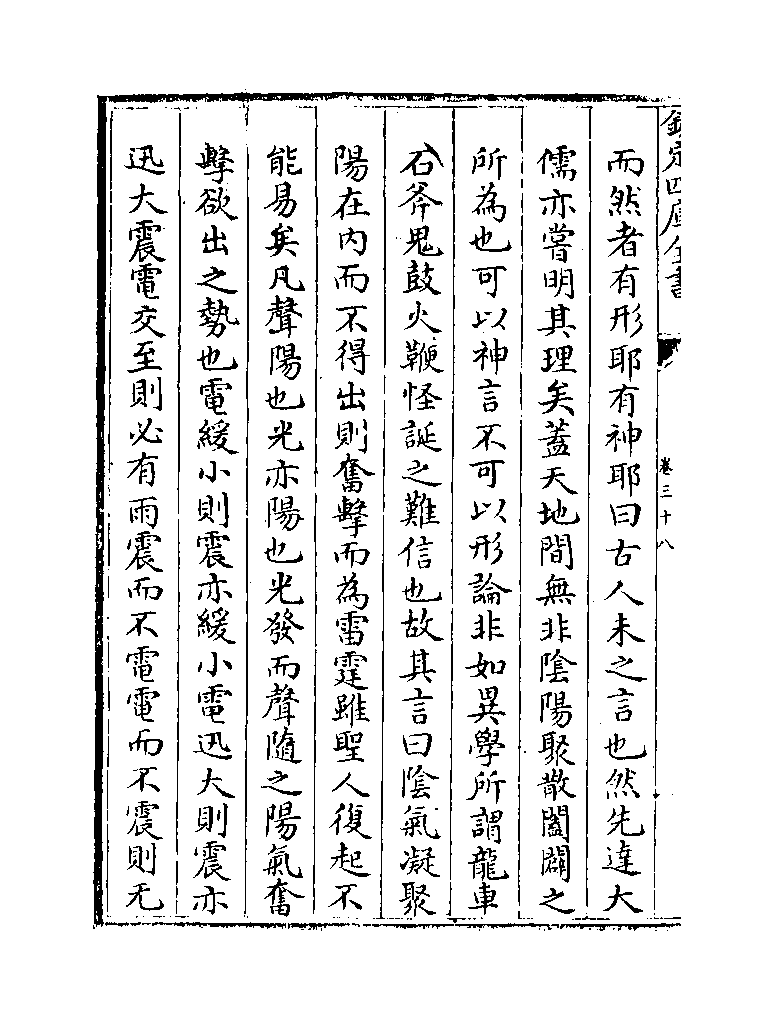 欽定四庫全書
卷三十八
而然者有形耶有神耶曰古人未之言也然先達大
儒亦嘗明其理矣蓋天地間無非陰陽聚散闔闢之
所為也可以神言不可以形論非如異學所謂龍車
石斧鬼鼓火鞭怪誕之難信也故其言曰陰氣凝聚
陽在内而不得出則奮擊而為雷霆雖聖人復起不
能易矣凡聲陽也光亦陽也光發而聲隨之陽氣奮
擊欲出之勢也電緩小則震亦緩小電迅大則震亦
迅大震電交至則必有雨震而不電電而不震則无